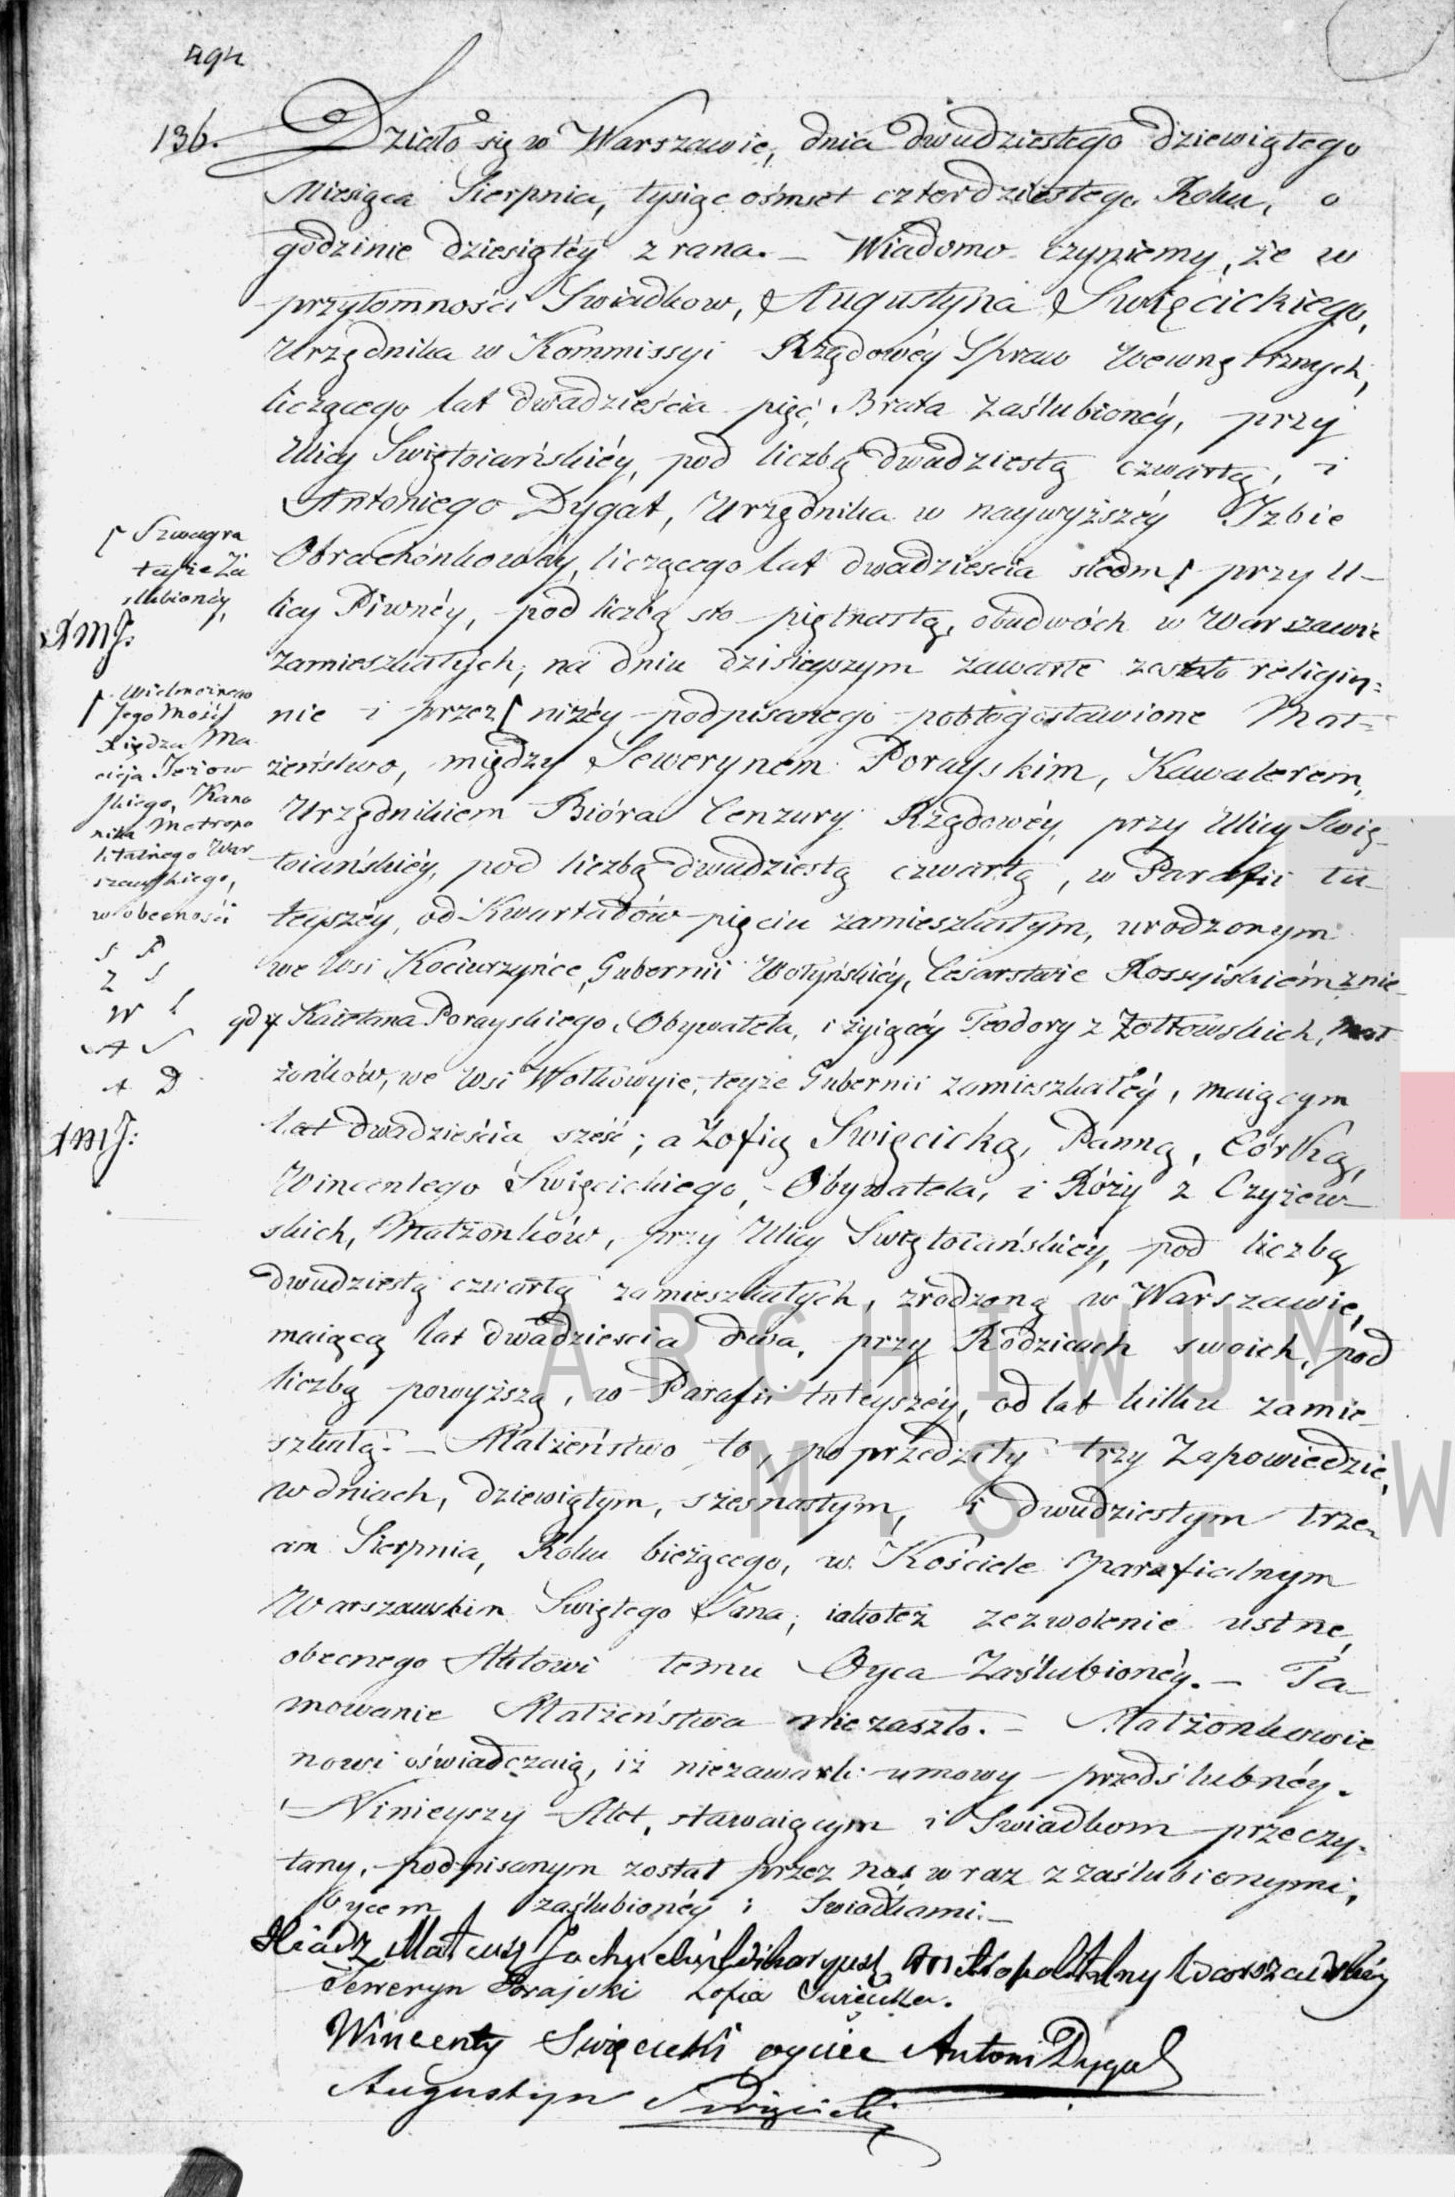 494
136. Działo się w Warszawie, dnia dwudziestego dziewiątego
Miesiąca Sierpnia, tysiąc ośmset czterdziestego Roku, o
godzinie dziesiątéy z rana. — Wiadomo czyniemy, że w
przytomności Swiadkow, Augustyna Swięcickiego,
Urzędnika w Kommissyi Rządowéy Spraw Wewnętrznych,
liczącego lat dwadzieścia pięć, Brata Zaślubionéy, przy
Ulicy Swiętoiańskiéy, pod liczbą dwudziestą czwartą, i
Antoniego Dygat, Urzędnika w naywyższéy Izbie
Obrachónkowéy, liczącego lat dwadzieścia siedm ſ przy U-
licy Piwnéy, pod liczbą sto piętnastą, obudwóch w Warszawie
zamieszkałych; na dniu dzisieyszym zawarte zostało religiy-
nie i przez ſ niżéy podpisanego pobłogosławione Mał-
żeństwo, między Sewerynem Porayskim, Kawalerem,
Urzędnikiem Bióra Cenzury Rządowéy, przy Ulicy Swię-
toiańskiéy, pod liczbą dwudziestą czwartą, w Parafii tu-
teyszéy, od Kwartałów pięciu zamieszkałym, urodzonym
we Wsi Kociurzyńce, Gubernii Wołyńskiéy, Cesarstwie Rossyiskiém z nie-
gdy Kaietana Porayskiego, Obywatela, i żyiącéy Teodory z Żołtowskich, Mał-
żonków, we Wsi Wołkowyie, teyże Gubernii zamieszkałéy, maiącym
lat dwadzieścia sześć; a Zofią Swięcicką, Panną, Córką,
Wincentego Święcickiego, Obywatela, i Róży z Czyżew-
skich, Małżonków, przy Ulicy Swiętoiańskiéy, pod liczbą
dwudziestą czwartą zamieszkałych, zrodzoną w Warszawie,
maiącą lat dwadzieścia dwa, przy Rodzicach swoich, pod
liczbą powyższą, w Parafii tuteyszéy, od lat kilku zamie-
szkałą. — Małżeństwo to, poprzedziły trzy Zapowiedzie,
w dniach, dziewiątym, szesnastym, i dwudziestym trze-
cim Sierpnia, Roku bieżącego, w Kościele Parafialnym
Warszawskim Swiętego Jana; iakoteż zezwolenie ustne,
obecnego Aktowi temu Oyca Zaślubionéy. — Ta-
mowanie Małżeństwa nie zaszło. — Małżonkowie
nowi oświadczaią, iż niezawarli umowy przedślubnéy.
Ninieyszy Akt, stawaiącym i Swiadkom przeczy-
tany, podpisanym został przez nas wraz z zaślubionymi,
Oycem zaślubionéy i Swiadkami. —
Xiądz Mateusz Wikaryusz Metropolitalny Warszawskiéy
Seweryn Porajski Zofia Swięcicka.
Wincenty Swięcicki oyciec Antoni Dygat
Augustyn Swięcicki
ſ Szwagra
tayże Za
slubionéy,
XMJ:
ſ Wielmożnego
Jego Mości
Xiędza Ma
cieja Jeżow
skiego, Kano
nika Metropo
litalnego War
szawskiego,
w obecności
S P
Z S
W S
A S
A D
XMJ:
ARCHIWUM
M. ST. W